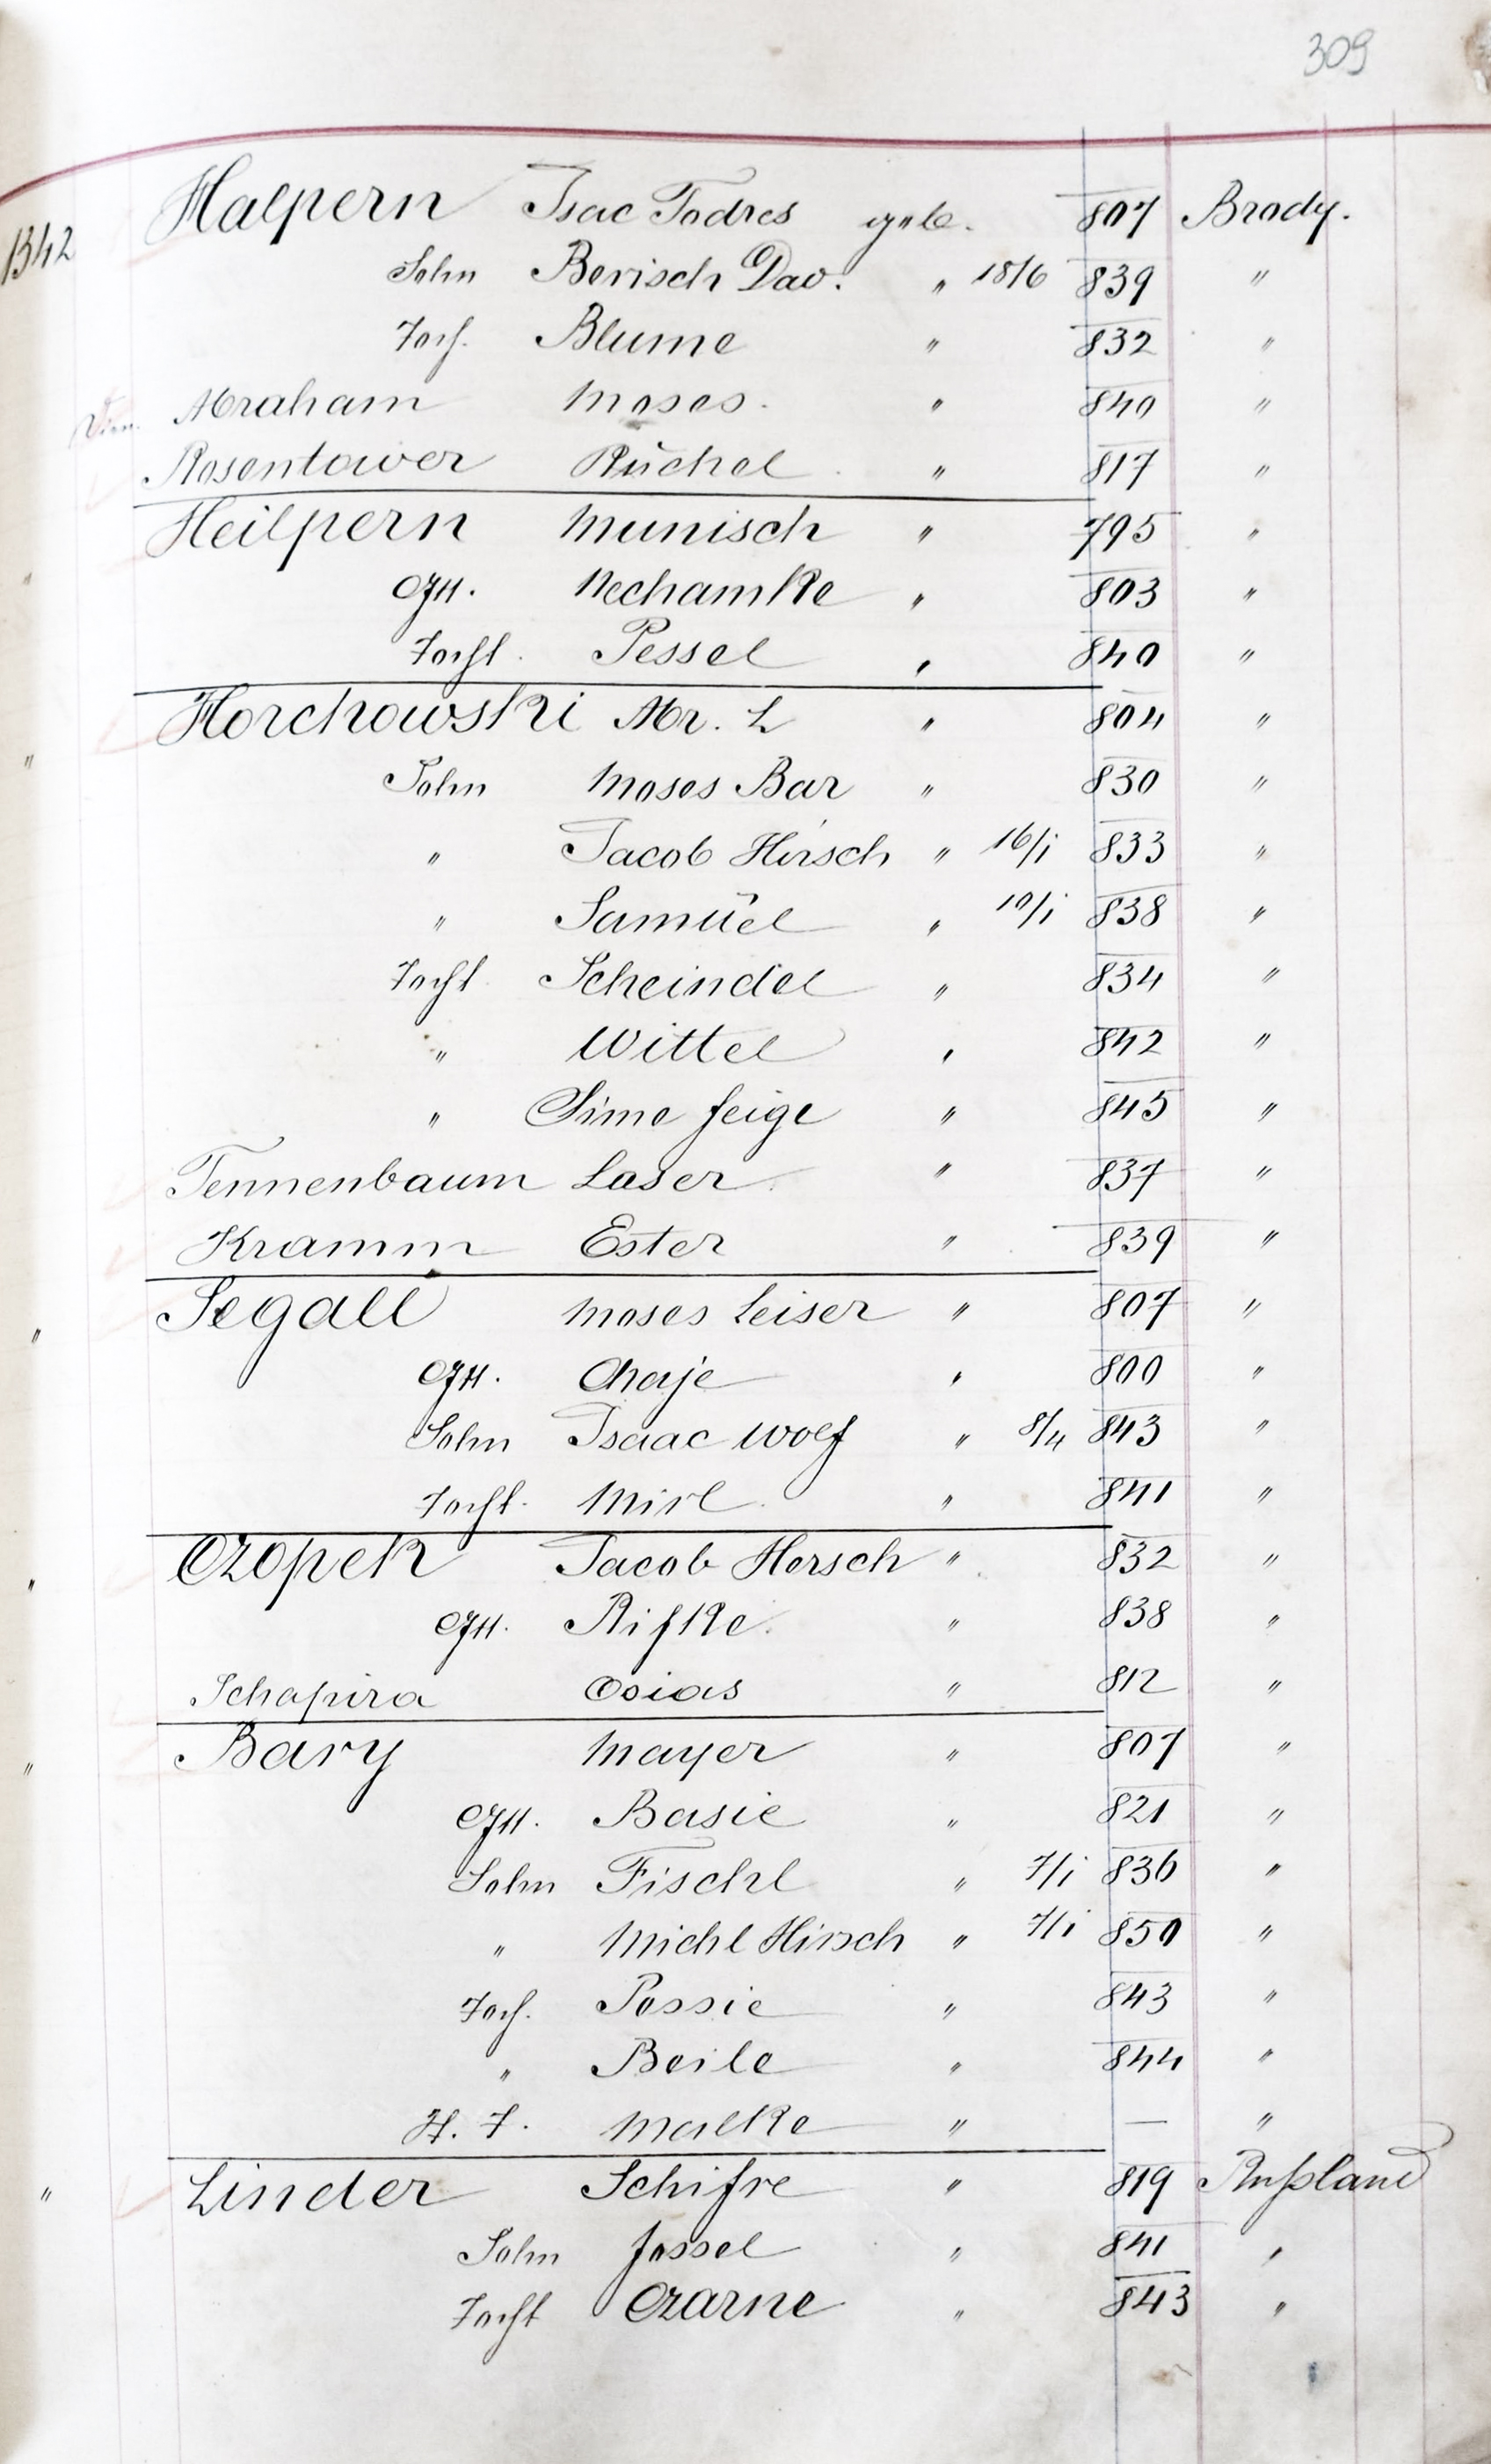 309
1342 Halpern Isac Todres geb. 807 Brody.
Sohn Berisch Dav. " 18/6 839 "
Toch. Blume " 832 "
Abraham Moses. " 840 "
Rosentower Rüchel " 817 "
Heilpern Munisch " 795 "
" Gtt. Nechamke " 803 "
Tocht. Pessel " 840 "
Horchowski Abr. L " 804 "
" Sohn Moses Bar " 830 "
" Jacob Hirsch " 16/i 833 "
" Samüel " 10/i 838 "
Tocht Scheindel " 834 "
" Wittel " 842 "
" Sime feige " 845 "
Tennenbaum Laser " 837 "
Kramm Ester " 839 "
" Segall Moses Leiser " 807 "
Gtt. Chaje " 800 "
Sohn Isaac Wolf " 8/4 843 "
Tocht. Mirl " 841 "
" Czopek Jacob Hersch " 832 "
Gtt. Rifke. " 838 "
Schapira Osias " 812 "
" Bary Mayer " 807 "
Gtt. Basie " 821 "
Sohn Fischl " 7/i 836 "
" Michl Hirsch " 7/i 850 "
Toch. Possie " 843 "
" Beile " 844 "
St. T. Malke " — "
" Linder Schifre " 819 Rußland
Sohn Jossel " 841 "
Tocht Czarne " 843 "